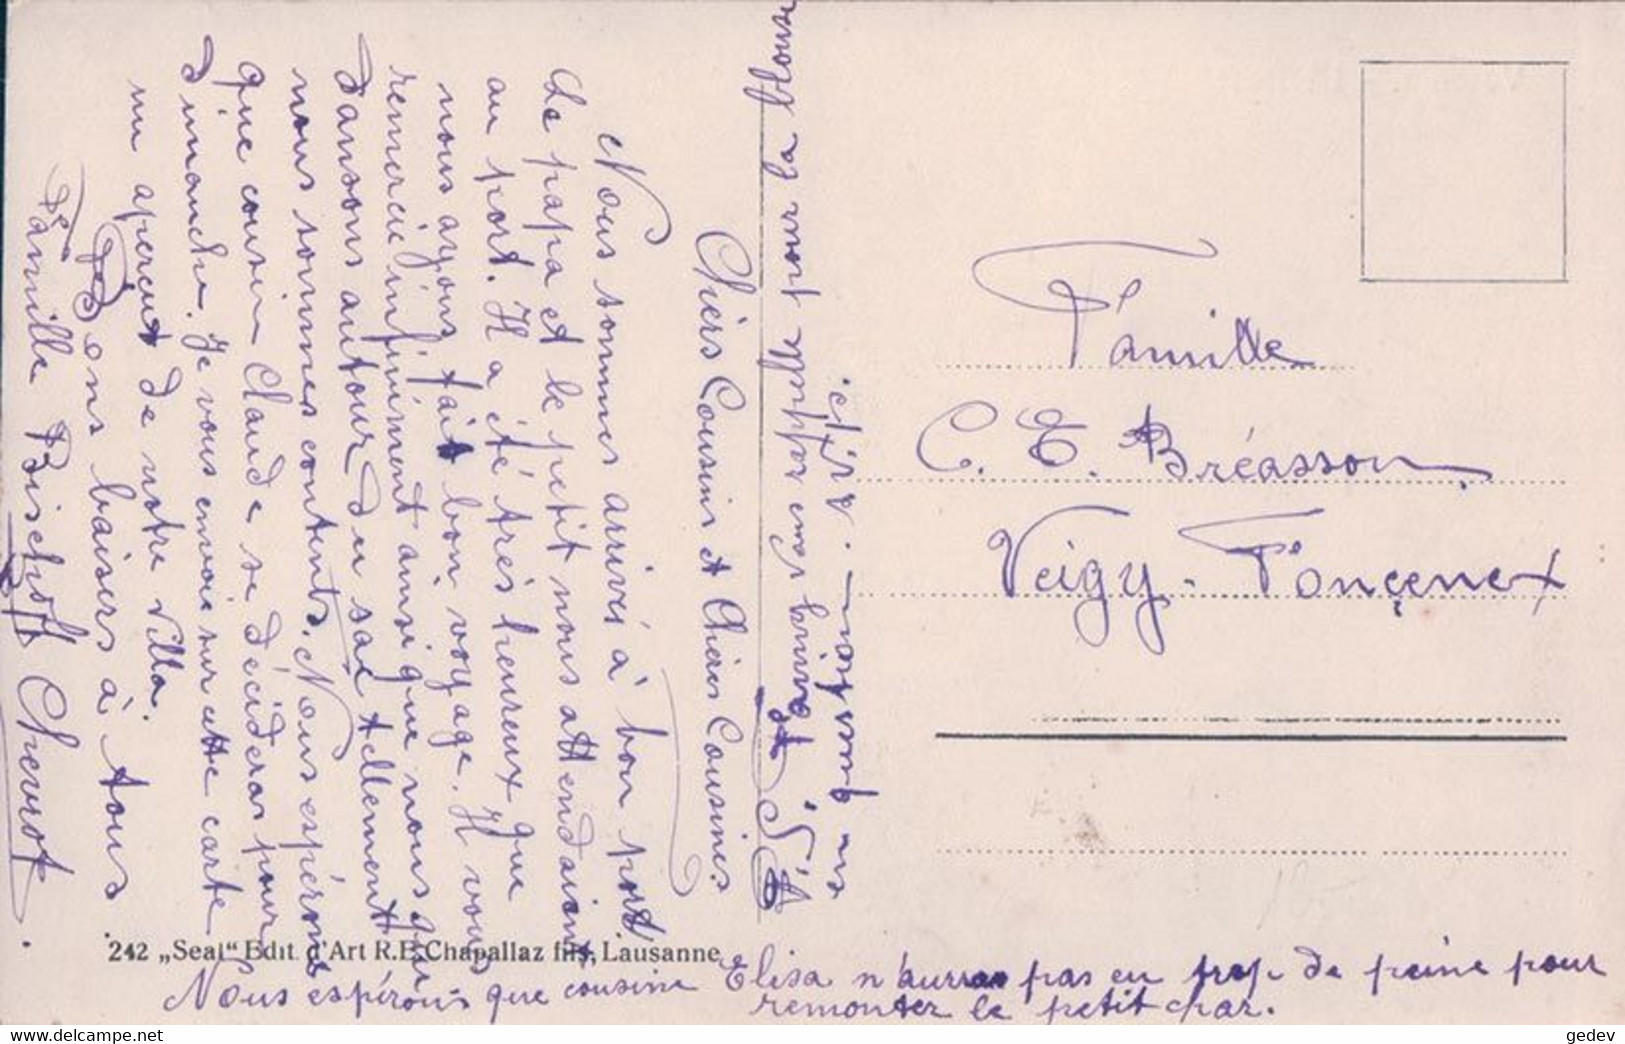 Chers Cousins et Chères Cousines
Nous sommes arrivés à bon port
le papa et le petit nous attendaient
au port. Il a été très heureux que
nous ayons fait bon voyage. Il vous
remercie infiniment ainsi que nous qui
dansons autour du sac tellement
nous sommes contents. Nous espérons
que cousin Claude se décideras pour
dimanche. Je vous envoie sur cette carte
un aperçut de notre villa.
Bons baisers à tous
Famille Bischoff Chevrot.
Nous espérons que cousine Elisa n'aurra pas eu trop de peine pour
remonter le petit char.
en question. s.v.p.
Famille
C. E. Bréasson,
Veigy-Fonçenex
242 „Seal" Edit d'Art R.E.Chapallaz fils, Lausanne
gedev